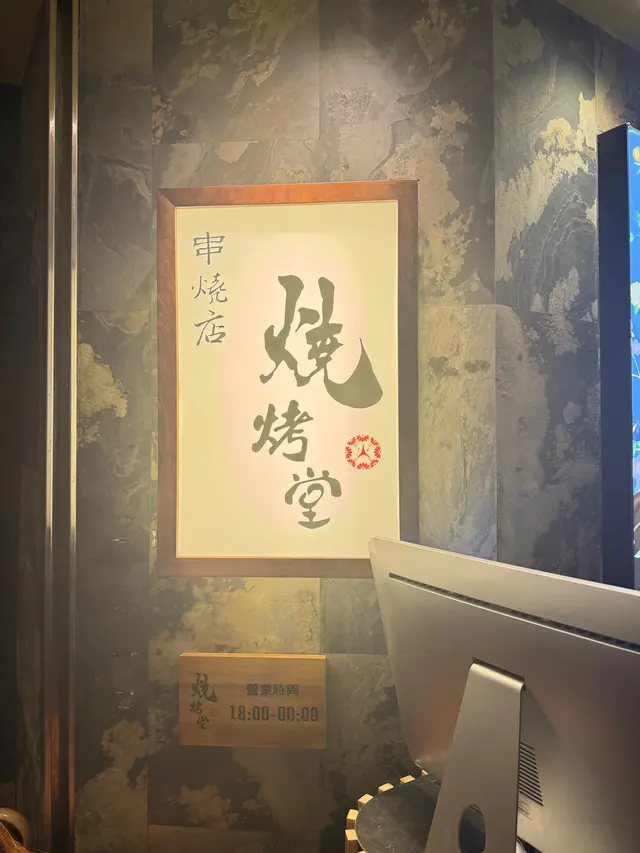 串燒店
燒烤堂
燒烤堂
營業時間
18:00-00:00